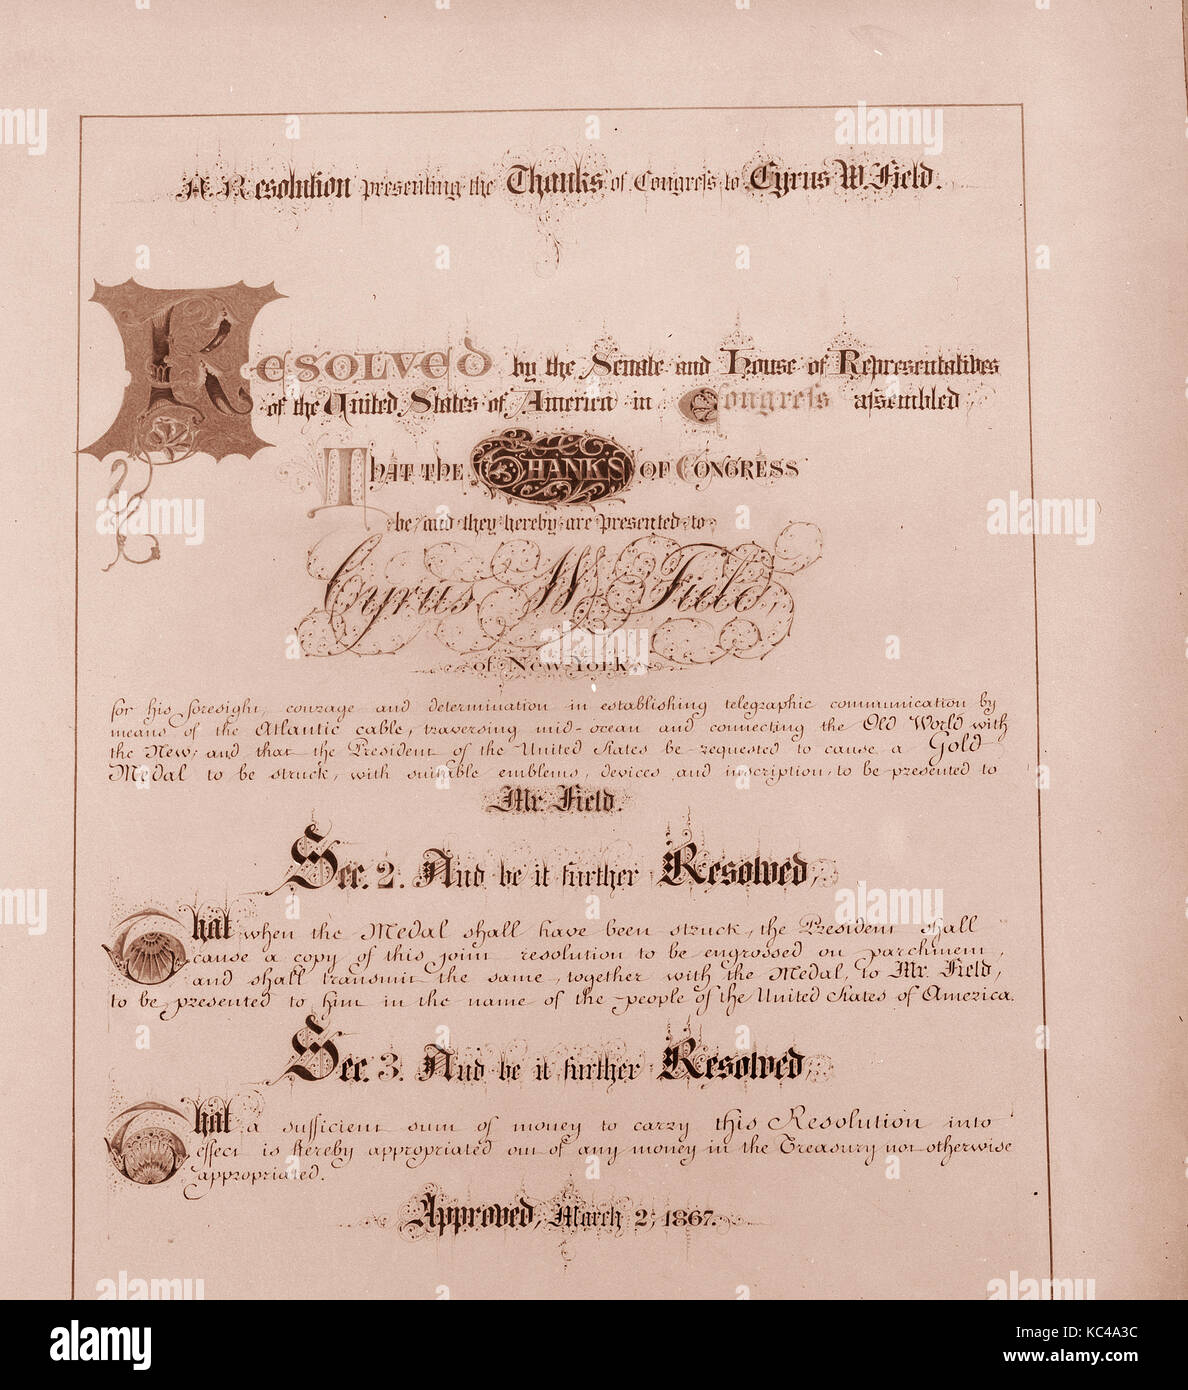 A Resolution presenting the Thanks of Congress to Cyrus W. Field.
Resolved by the Senate and House of Representatives
of the United States of America in Congress assembled
That the Thanks of Congress
be, and they hereby are presented to
Cyrus W. Field,
of New-York,
for his foresight, courage and determination in establishing telegraphic communication by
means of the Atlantic cable, traversing mid-ocean and connecting the Old World with
the New; and that the President of the United States be requested to cause a Gold
Medal to be struck, with suitable emblems, devices and inscription, to be presented to
Mr. Field.
Sec. 2. And be it further Resolved,
That when the Medal shall have been struck, the President shall
cause a copy of this joint resolution to be engrossed on parchment,
and shall transmit the same, together with the Medal, to Mr. Field,
to be presented to him in the name of the people of the United States of America.
Sec. 3. And be it further Resolved,
That a sufficient sum of money to carry this Resolution into
effect is hereby appropriated out of any money in the Treasury not otherwise
appropriated.
Approved, March 2, 1867.
alamy
Image ID: KC4A3C
www.alamy.com